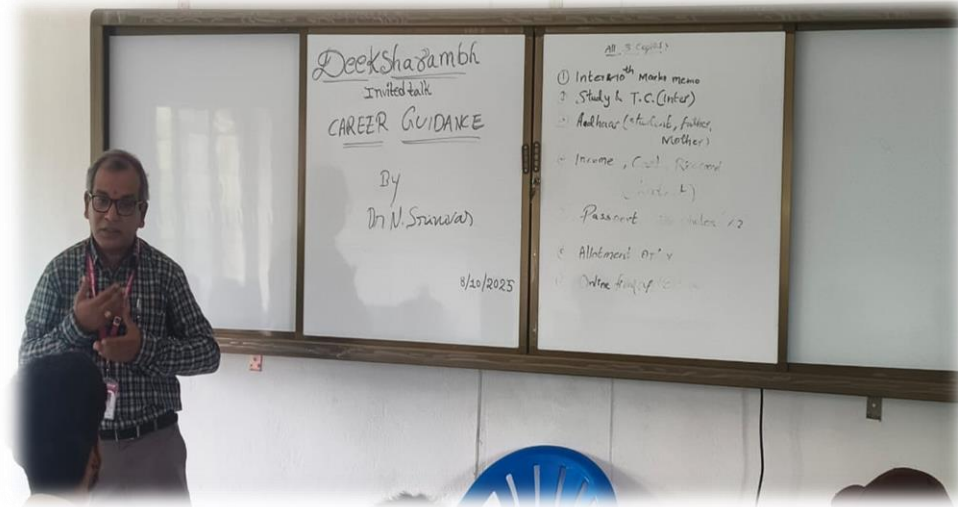 Deeksharambh
Invited talk
CAREER GUIDANCE
By
Dr N. Srinivas
8/10/2025
All 3 Copies
① Inter &10th Marks memo
Study & T.C. (Inter)
Aadhaar (student, father,
Mother)
Income,
Passport
Allotment
Online